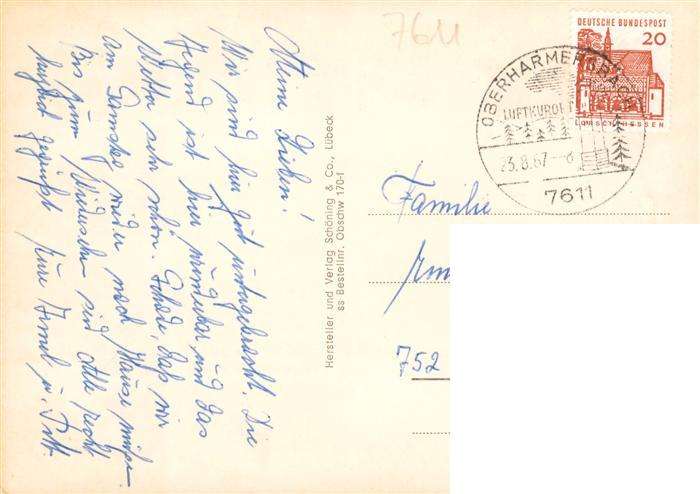 Meine Lieben!
Wir sind hier gut untergebracht. Die
Gegend ist hier wunderbar und das
Wetter sehr schön. Schade, daß wir
am Samstag wieder nach Hause müssen.
Bis zum Wiedersehen sind alle recht
herzlich gegrüßt Eure u.
Hersteller und Verlag Schöning & Co., Lübeck
ss Bestellnr. Obschw 170-f
7611
DEUTSCHE BUNDESPOST
20
LORSCH/HESSEN
OBERHARMERSBACH
LUFTKURORT
23.8.67
7611
Familie
752